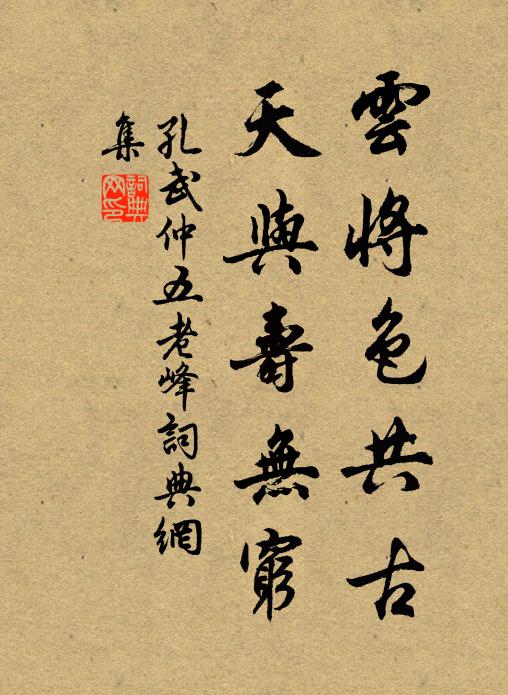 雲將色共古
天與壽無窮
孔武仲五老峰詞典網
集
詞典网印